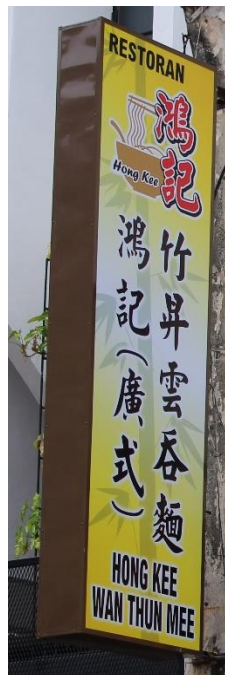 RESTORAN
鴻記
Hong Kee
竹昇雲吞麵
鴻記(廣式)
HONG KEE
WAN THUN MEE